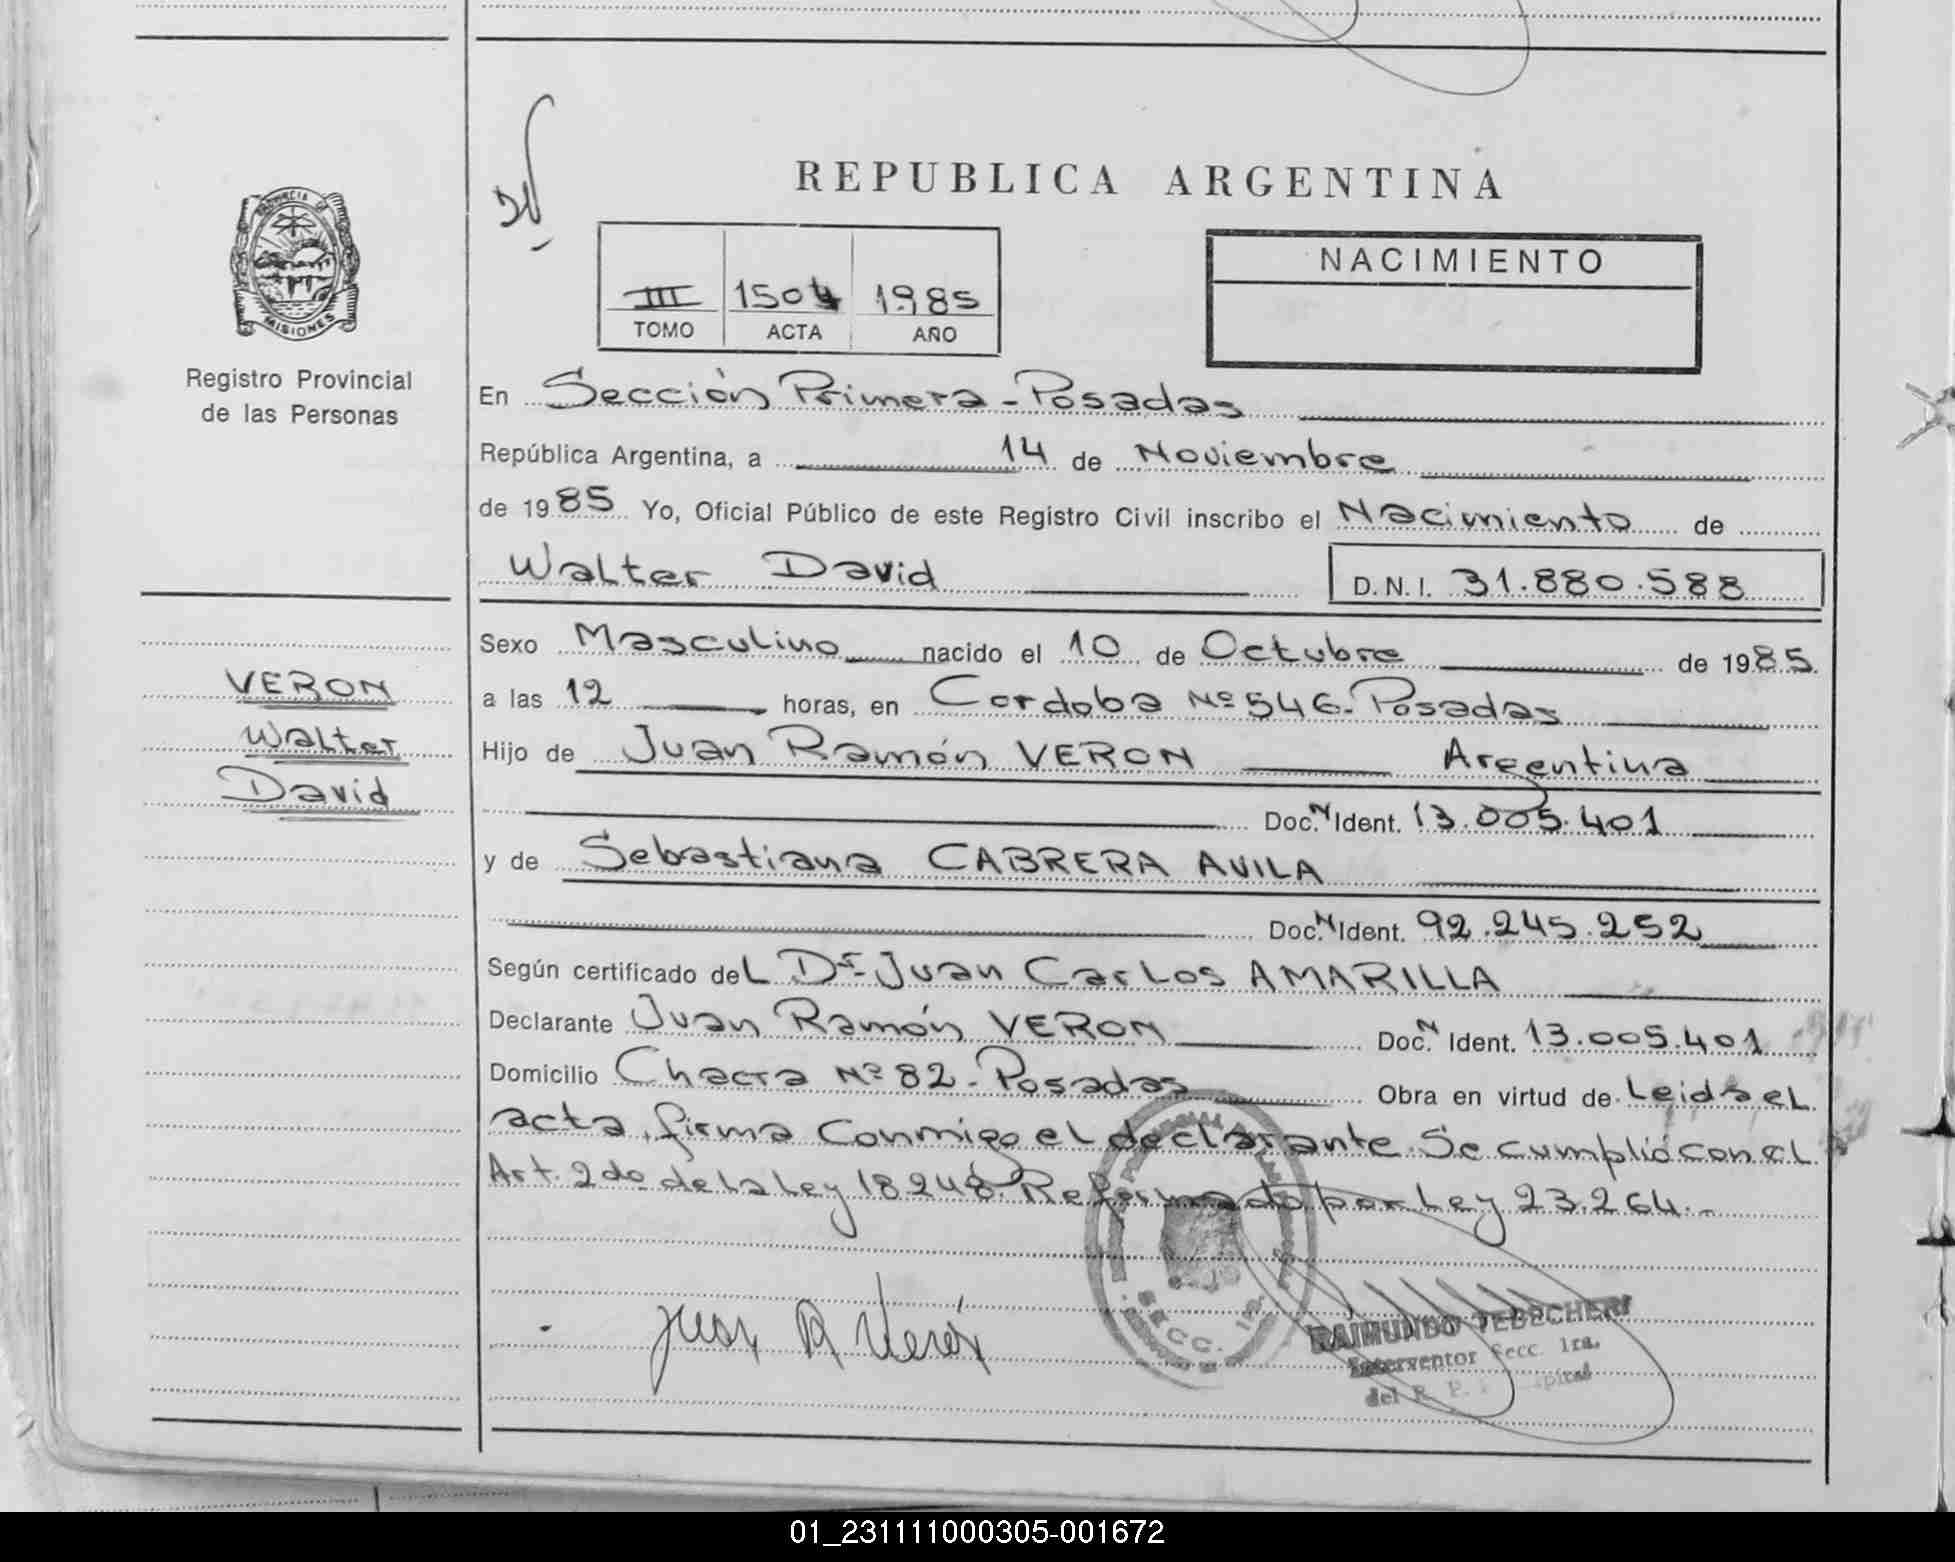 REPUBLICA ARGENTINA
PROVINCIA DE
MISIONES
Registro Provincial
de las Personas
III 1504 1985
TOMO ACTA AÑO
NACIMIENTO
En Sección Primera - Posadas
República Argentina, a 14 de Noviembre
de 1985 Yo, Oficial Público de este Registro Civil inscribo el Nacimiento de
Walter David D.N.I. 31.880.588
Sexo Masculino nacido el 10 de Octubre de 1985
a las 12 horas, en Cordoba Nº 546 - Posadas
Hijo de Juan Ramón VERON Argentina
Doc. N Ident. 13.005.401
y de Sebastiana CABRERA AVILA
Doc. N Ident. 92.245.252
Según certificado del Dr. Juan Carlos AMARILLA
Declarante Juan Ramón VERON Doc. N Ident. 13.005.401
Domicilio Chacra Nº 82 - Posadas Obra en virtud de Leida el
acta, firma conmigo el declarante. Se cumplió con el
Art. 2do de la Ley 18248. Reformado por Ley 23.264.-
VERON
Walter
David
Juan R Verón
SECC. 1ra.
RAIMUNDO TEDECHERI
Interventor Secc. 1ra.
del R. P.
01_231111000305-001672